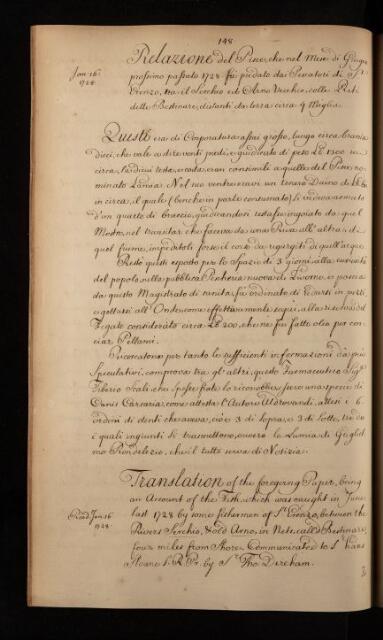 148
Relazione del Pesce, che nel Mese di Giugno
Jan 16.
1728.
prossimo passato 1728 fù predato dai Pescatori di St.
Lorenzo, tra il Serchio ed Arno Vecchio, colle Reti
dette Bestinare, distanti da terra circa 4 Miglia.
Questo era di Corporatura assai grosso, lungo circa braccia
dieci, che vale a dire venti piedi, e giudicato di peso Lb 1300 in
circa, la di cui testa, e coda eran consimile a quelle del Pesce no=
minato Lamia. Nel suo ventre aveva un tenero Daino di Lb
in circa, il quale (benche in parte consumato) si
d'un quarto di braccio, giudicandosi restasse ingoiato da quel
Mostro, nel transitar che faceva da una Riva all' altra, di
quel fiume, impeditoli forse il corso da rigurgiti di quell' acque.
Restò questi esposto per lo Spazio di 3 giorni alla curiosità
del popolo, nella pubblica Pescheria nuova di Livorno, e poscia
da questo Magistrato di Sanità, fu ordinato di
e gettarsi all' Onde, come effettivamente seguì, alla riserva del
Fegato considerato circa Lb 200, che ne fù fatto olio per con=
ciar Pellami.
per tanto le sufficienti informazioni da più
Speculativi, comprova tra gl' altri, questo Farmaceutico Sigr.
Tiberio Scali che spesse fiate lo riconobbe, fosse una specie di
Canis Carcaria, come attesta l' Autore Aldrovandi, attesi i 6
ordini di denti che aveva, cioè 3 di Sopra, e 3 di Sotto,
i quali
mo Rondelezio, che il tutto serva di Notizia.
Translation of the foregoing Paper, being
an Account of the Fish, which was caught in June
Read Jan 16
1728.
last 1728 by some fishermen of St. Lorenzo, between the
Rivers Serchio, & old Arno, in Nets, call'd Bestinare,
four miles from Shore. Communicated to Sr. Hans
Sloane P. R. S. by Sr. Tho. Dereham.